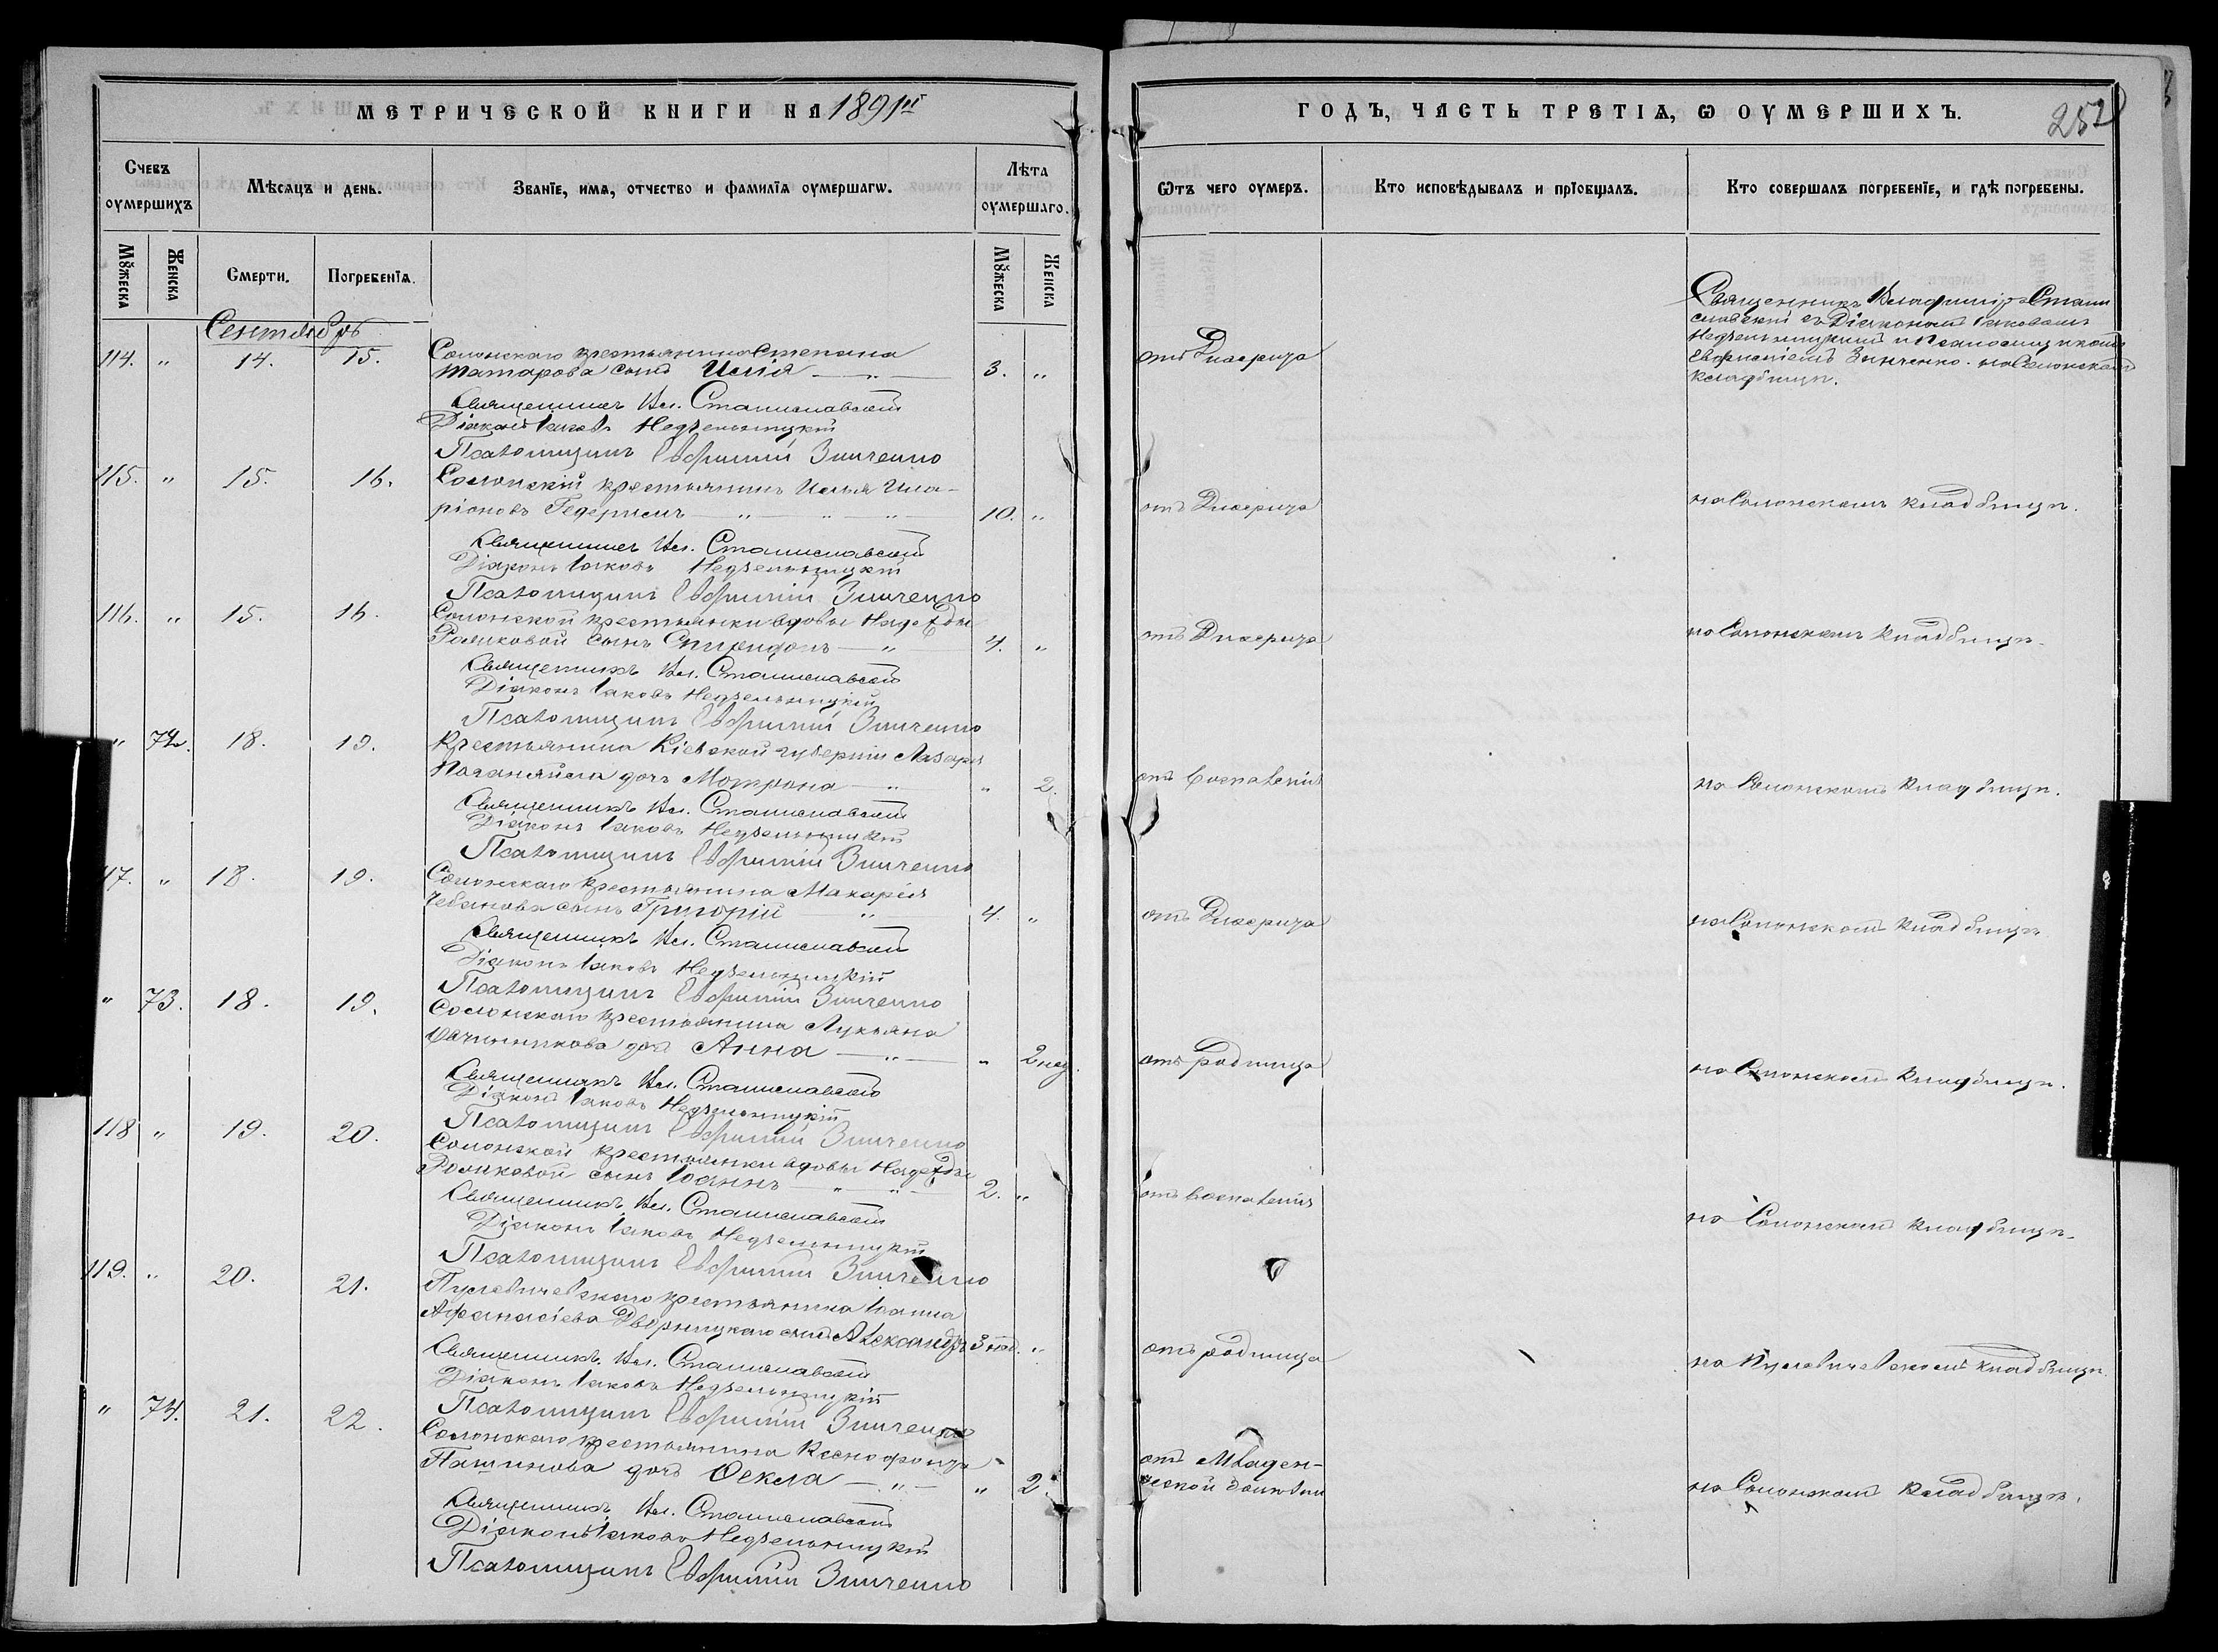 МЕТРИЧЕСКОЙ КНИГИ НА 1891й
ГОДЪ, ЧАСТЬ ТРЕТІѦ, Ѡ ОУМЕРШИХЪ.
252
Счевъ оумершихъ
Мѣсѧцъ и день.
Званїе, имѧ, отчество и фамилїѧ оумершагѡ.
Лѣта оумершаго.
Ѿтъ чего оумеръ.
Кто исповѣдывалъ и прїобщалъ.
Кто совершалъ погребенїе, и гдѣ погребены.
Мꙋжеска
Женска
Смерти.
Погребенїѧ.
Мꙋжеска
Женска
Сентябрь
114. " 14. 15.
Солонскаго крестьянина Степана
Татарова сынъ Илія — " — 3. "
отъ Дифтерита
Священникъ Владиміръ Стани
славскій съ Діякономъ Іаковомъ
Недзельницкимъ и Псаломщикомъ
Евфиміемъ Зинченко. на Солонскомъ
кладбищѣ.
Священникъ Вл. Станиславскій
Діяконъ Іаковъ Недзельницкій
Псаломщикъ Евфимій Зинченко
115. " 15. 16.
Солонскій крестьянинъ Илья Ила-
ріоновъ — " — " — " — 10. "
на Солонскомъ кладбищѣ.
Священникъ Вл. Станиславскій
Діяконъ Іаковъ Недзельницкій
Псаломщикъ Евфимій Зинченко
116. " 15. 16.
Солонской крестьянки вдовы Надежды
сынъ Спиридонъ — " 4. "
на Солонскомъ кладбищѣ.
Священникъ Вл. Станиславскій
Діяконъ Іаковъ Недзельницкій
Псаломщикъ Евфимій Зинченко
" 72. 18. 19.
Крестьянина Кіевской губерніи Лазаря
дочь Мотрона — " — " 2.
отъ воспаленія
на Солонскомъ кладбищѣ.
Священникъ Вл. Станиславскій
Діяконъ Іаковъ Недзельницкій
Псаломщикъ Евфимій Зинченко
117. " 18. 19.
Солонскаго крестьянина Макарія
Чебанова сынъ Григорій — " 4. "
на Солонскомъ кладбищѣ
Священникъ Вл. Станиславскій
Діяконъ Іаковъ Недзельницкій
Псаломщикъ Евфимій Зинченко
" 73. 18. 19.
Солонскаго крестьянина Лукьяна
дочь Анна — " — " 2 нед.
отъ родимца
на Солонскомъ кладбищѣ.
Священникъ Вл. Станиславскій
Діяконъ Іаковъ Недзельницкій
Псаломщикъ Евфимій Зинченко
118 " 19. 20.
Солонской крестьянки вдовы Надежды
сынъ Іоаннъ — " — " — 2. "
отъ воспаленія
на Солонскомъ кладбищѣ.
Священникъ Вл. Станиславскій
Діяконъ Іаковъ Недзельницкій
Псаломщикъ Евфимій Зинченко
119. " 20. 21.
крестьянина Іоанна
Афанасіева Дворницкаго сынъ Александръ 3 нед. "
отъ родимца
кладбищѣ.
Священникъ Вл. Станиславскій
Діяконъ Іаковъ Недзельницкій
Псаломщикъ Евфимій Зинченко
" 74. 21. 22.
Солонскаго крестьянина Ксенофонта
Пашинова дочь Ѳекла — " — " 2.
отъ Младен-
ческой болѣзни
на Солонскомъ кладбищѣ.
Священникъ Вл. Станиславскій
Діяконъ Іаковъ Недзельницкій
Псаломщикъ Евфимій Зинченко